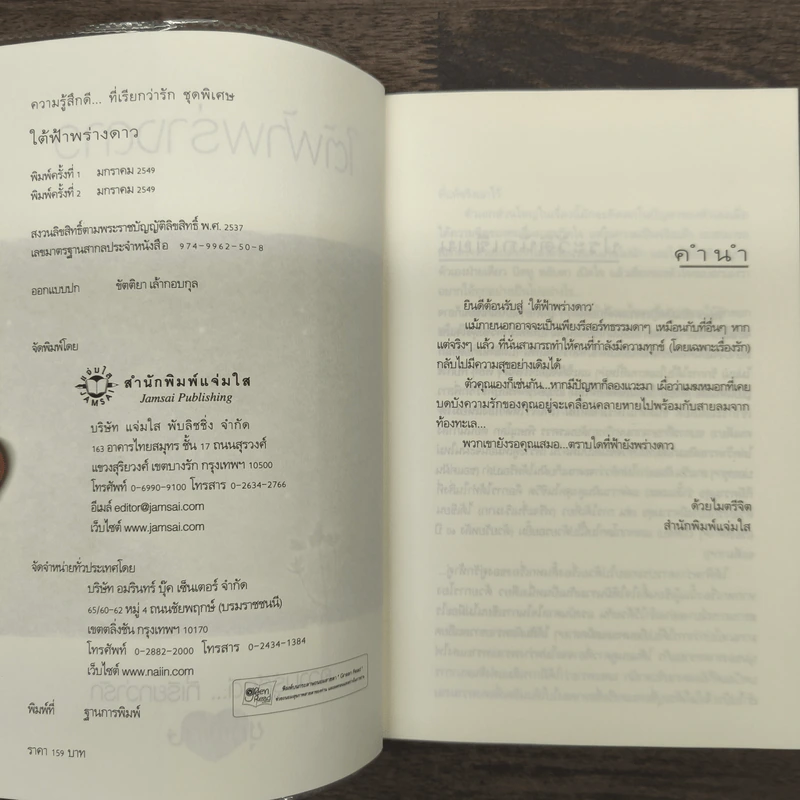 ความรู้สึกดี... ที่เรียกว่ารัก ชุดพิเศษ
ใต้ฟ้าพร่างดาว
พิมพ์ครั้งที่ 1 มกราคม 2549
พิมพ์ครั้งที่ 2 มกราคม 2549
สงวนลิขสิทธิ์ตามพระราชบัญญัติลิขสิทธิ์ พ.ศ. 2537
เลขมาตรฐานสากลประจำหนังสือ 974-9962-50-8
ออกแบบปก ขัตติยา เล้ากอบกุล
จัดพิมพ์โดย
สำนักพิมพ์แจ่มใส
Jamsai Publishing
บริษัท แจ่มใส พับลิชชิ่ง จำกัด
163 อาคารไทยสมุทร ชั้น 17 ถนนสุรวงศ์
แขวงสุริยวงศ์ เขตบางรัก กรุงเทพฯ 10500
โทรศัพท์ 0-6990-9100 โทรสาร 0-2634-2766
อีเมล์ editor@jamsai.com
เว็บไซต์ www.jamsai.com
จัดจำหน่ายทั่วประเทศโดย
บริษัท อมรินทร์ บุ๊ค เซ็นเตอร์ จำกัด
65/60-62 หมู่ 4 ถนนชัยพฤกษ์ (บรมราชชนนี)
เขตตลิ่งชัน กรุงเทพฯ 10170
โทรศัพท์ 0-2882-2000 โทรสาร 0-2434-1384
เว็บไซต์ www.naiin.com
Green Read
พิมพ์ที่ ฐานการพิมพ์
ราคา 159 บาท
คำนำ
ยินดีต้อนรับสู่ 'ใต้ฟ้าพร่างดาว'
แม้ภายนอกอาจจะเป็นเพียงรีสอร์ทธรรมดาๆ เหมือนกับที่อื่นๆ หาก
แต่จริงๆ แล้ว ที่นั่นสามารถทำให้คนที่กำลังมีความทุกข์ (โดยเฉพาะเรื่องรัก)
กลับไปมีความสุขอย่างเดิมได้
ตัวคุณเองก็เช่นกัน...หากมีปัญหาก็ลองแวะมา เผื่อว่าเมฆหมอกที่เคย
บดบังความรักของคุณอยู่จะเคลื่อนคลายหายไปพร้อมกับสายลมจาก
ท้องทะเล...
พวกเขายังรอคุณเสมอ...ตราบใดที่ฟ้ายังพร่างดาว
ด้วยไมตรีจิต
สำนักพิมพ์แจ่มใส